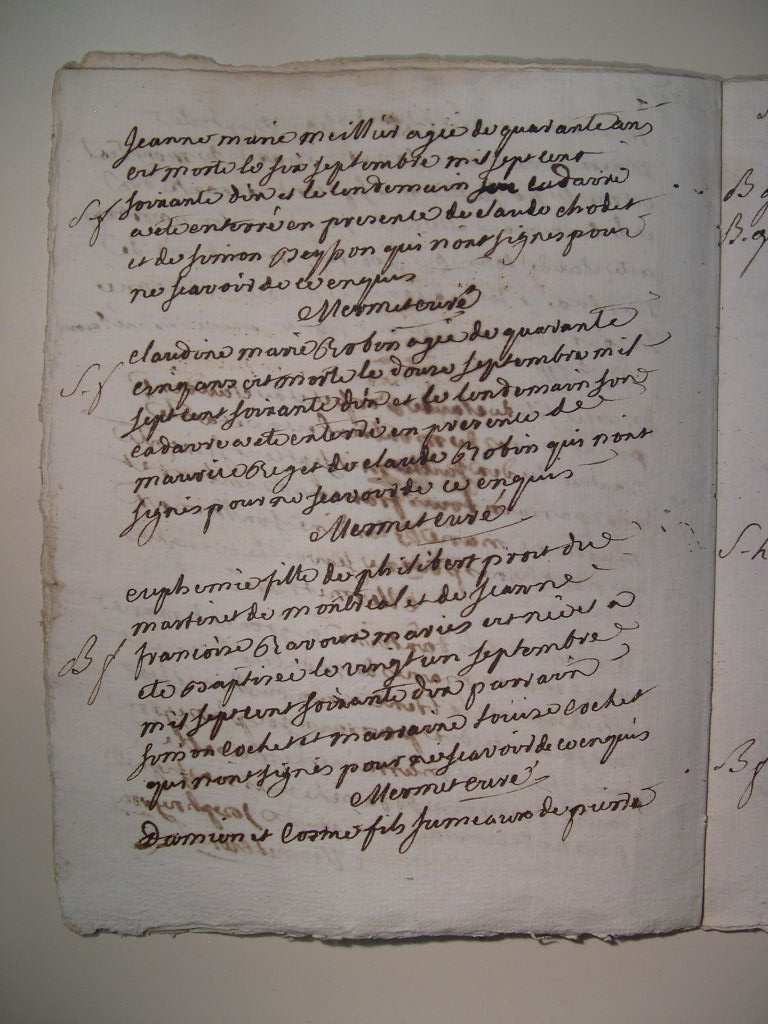 Jeanne marie meillier agée de quarante ans
est morte le six septembre mil sept cent
S-f soixante dix et le lendemain son cadavre
a ete enterré en presence de claude chodet
et de simon peysson qui n'ont signés pour
ne scavoir de ce enquis
Mermet curé
claudine marie Robin agée de quarante
S-f cinq ans est morte le douze septembre mil
sept cent soixante dix et le lendemain son
cadavre a ete enterré en presence de
maurice Reget de claude Robin qui n'ont
signés pour ne scavoir de ce enquis
Mermet curé
euphemie fille de philibert prost du
martinet de montreal et de jeanne
françoise Ravoux mariés est née et a
B f ete Baptisée le vingt un septembre
mil sept cent soixante dix parrain
simon Cochet et marraine Louise Cochet
qui n'ont signés pour ne scavoir de ce enquis
Mermet curé
Damien et Cosme fils jumeaux de pierre
B
B-g
S-h
B f